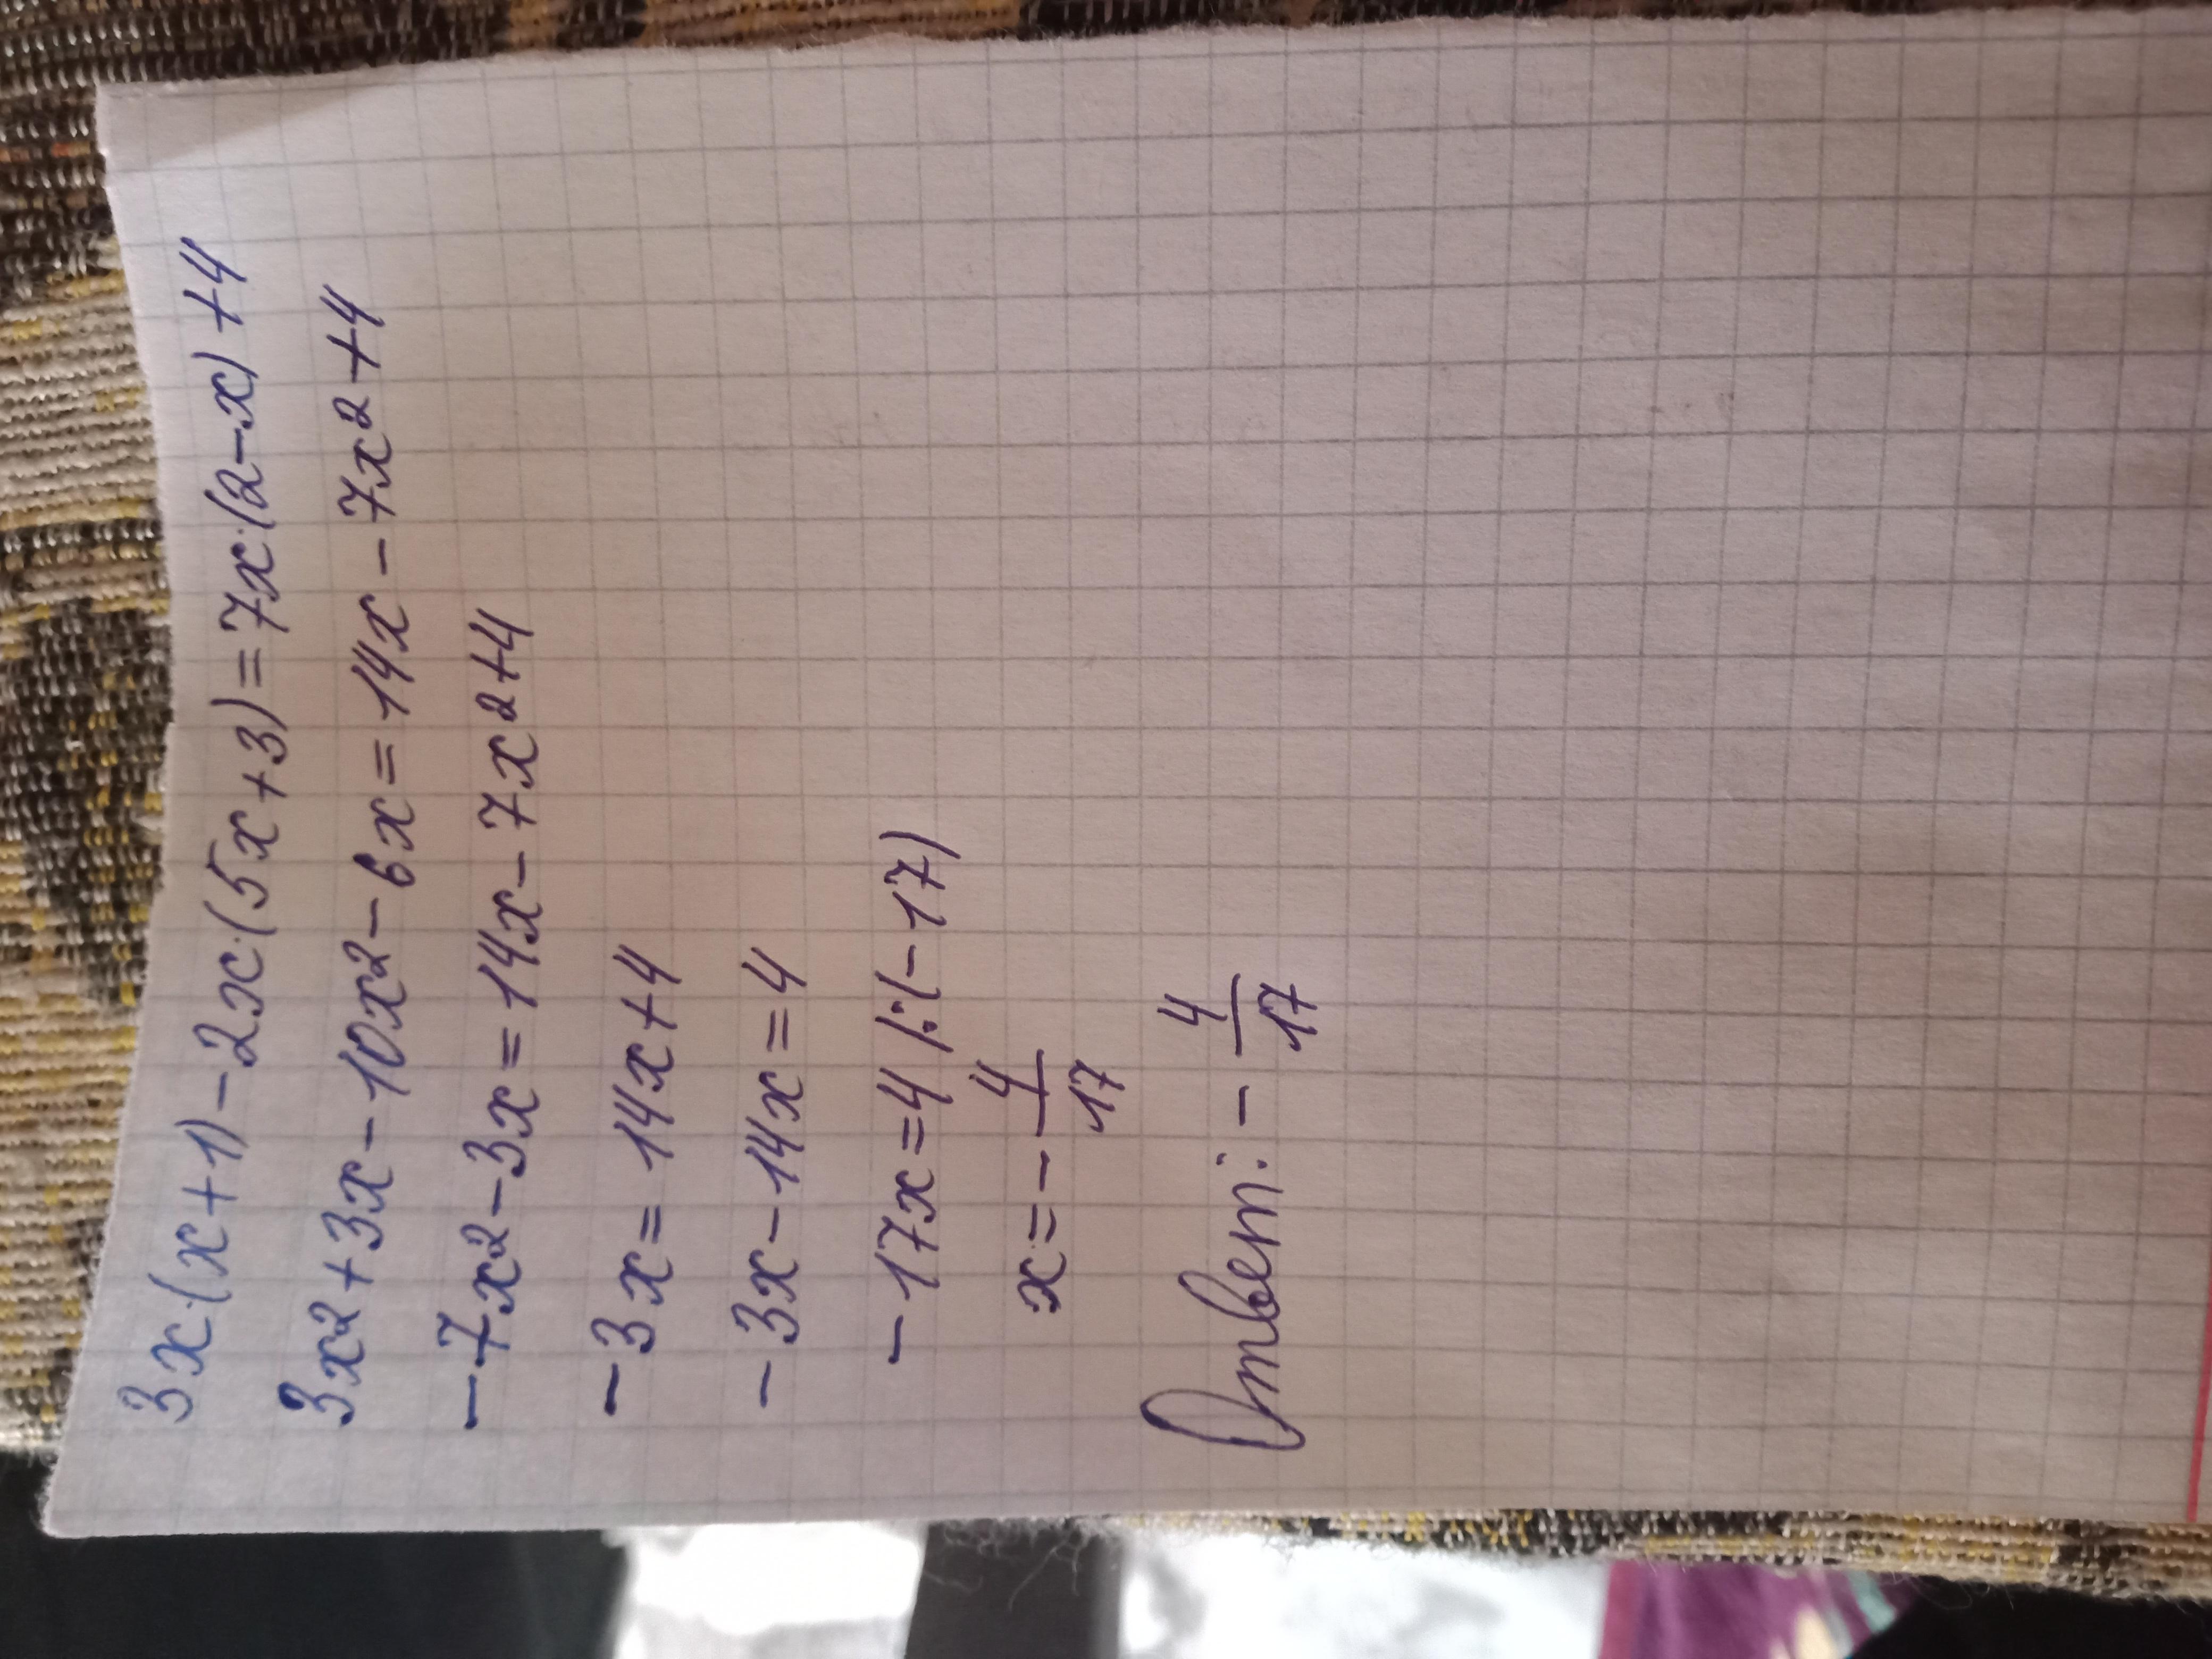 3x·(x+1)-2x·(5x+3)=7x·(2-x)+4
3x²+3x-10x²-6x=14x-7x²+4
-7x²-3x=14x-7x²+4
-3x=14x+4
-3x-14x=4
-17x=4 |:(-17)
x=-4/17
Ответ: -4/17